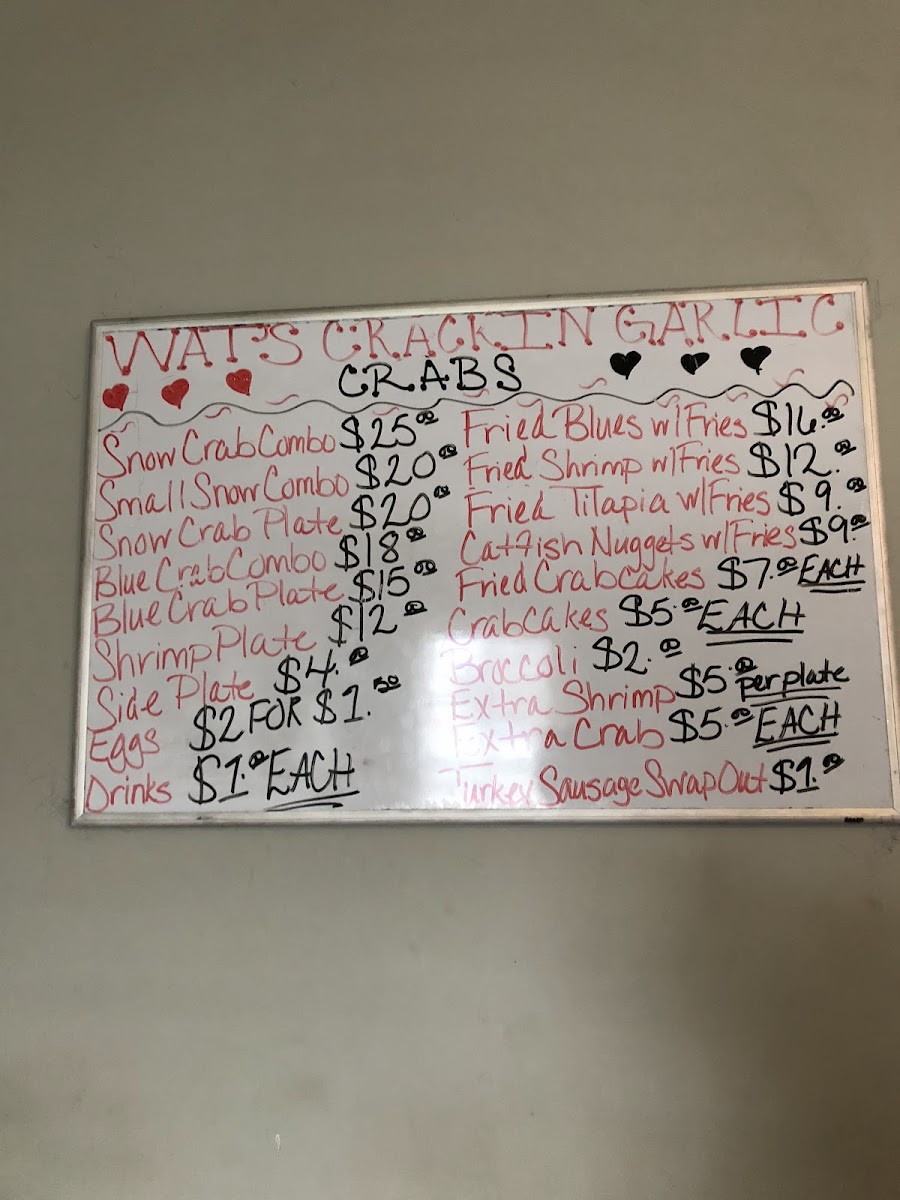 WAT'S CRACKIN GARLIC
CRABS
Snow Crab Combo $25.00
Small Snow Combo $20.00
Snow Crab Plate $20.00
Blue Crab Combo $18.00
Blue Crab Plate $15.00
Shrimp Plate $12.00
Side Plate $4.00
Eggs $2 FOR $1.50
Drinks $1.00 EACH
Fried Blues w/Fries $16.00
Fried Shrimp w/Fries $12.00
Fried Tilapia w/Fries $9.00
Catfish Nuggets w/Fries $9.00
Fried Crabcakes $7.00 EACH
Crabcakes $5.00 EACH
Broccoli $2.00
Extra Shrimp $5.00 per plate
Extra Crab $5.00 EACH
Turkey Sausage Swap Out $1.00